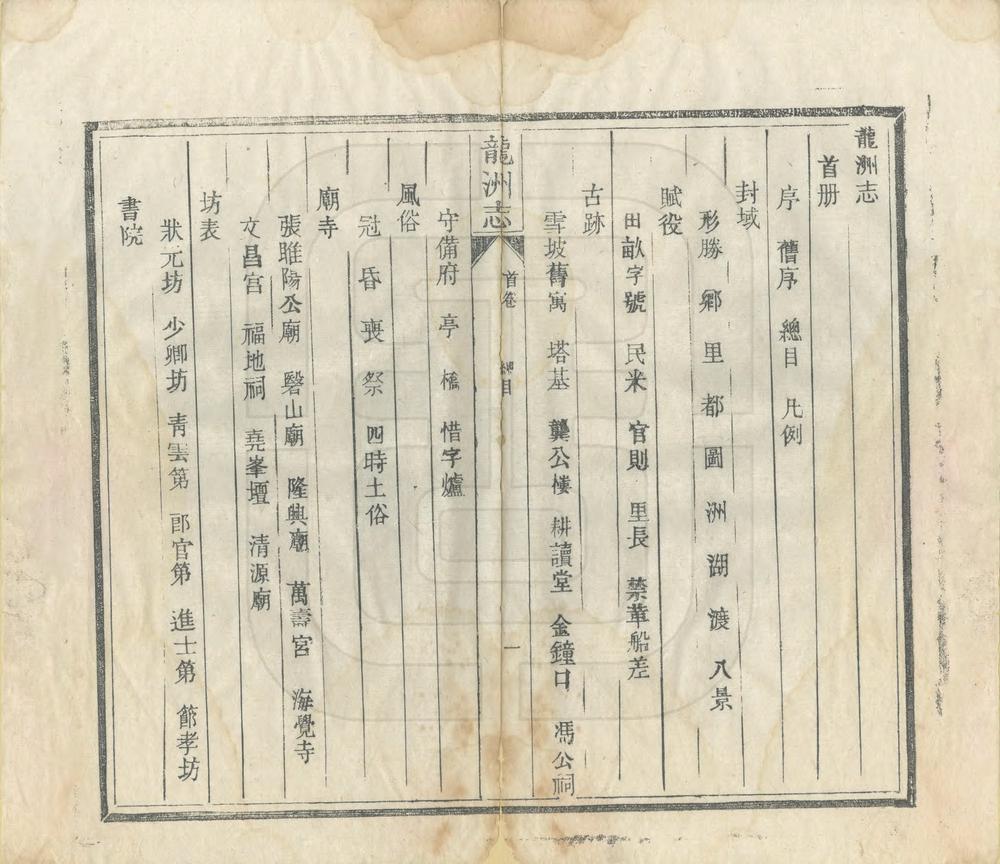 龍洲志
首册
序 舊序 總目 凡例
封域
形勝 鄉 里 都 圖 洲 湖 渡 八景
賦役
田畝字號 民米 官則 里長 禁革船差
古跡
雪坡舊寓 塔基 龔公樓 耕讀堂 金鐘口 馮公祠
龍洲志 首卷 總目 一
守備府 亭 橋 惜字爐
風俗
冠 昏 喪 祭 四時土俗
廟寺
張睢陽公廟 醫山廟 隆興廟 萬壽宮 海覺寺
文昌宮 福地祠 堯峯壇 清源廟
坊表
狀元坊 少卿坊 青雲第 郎官第 進士第 節孝坊
書院